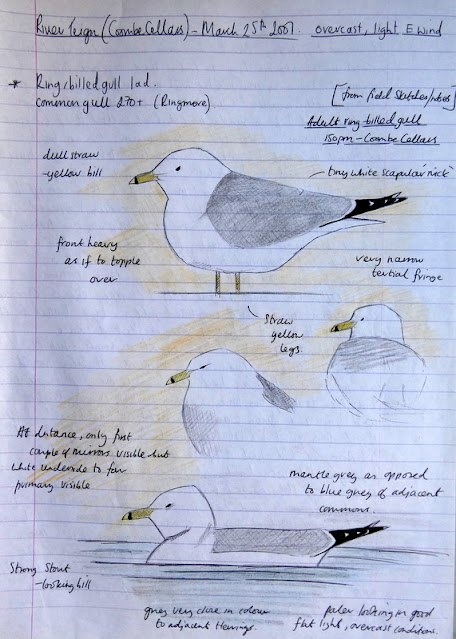 River Teign (Coombe Cellars) - March 25th 2007. overcast, light E wind
* Ring-billed gull 1ad.
common gull 270+ (Ringmore)
[from field sketches/notes]
Adult ring-billed gull
150pm - Coombe Cellars
dull straw
-yellow bill
tiny white scapular 'nick'
front heavy
as if to topple
over
very narrow
tertial fringe
straw
yellow
legs.
At distance, only first
couple of mirrors visible but
white underside to far
primary visible
mantle grey as opposed
to blue grey of adjacent
commons.
Strong stout
-looking bill
grey very close in colour
to adjacent Herrings.
paler looking in good
flat light, overcast conditions.